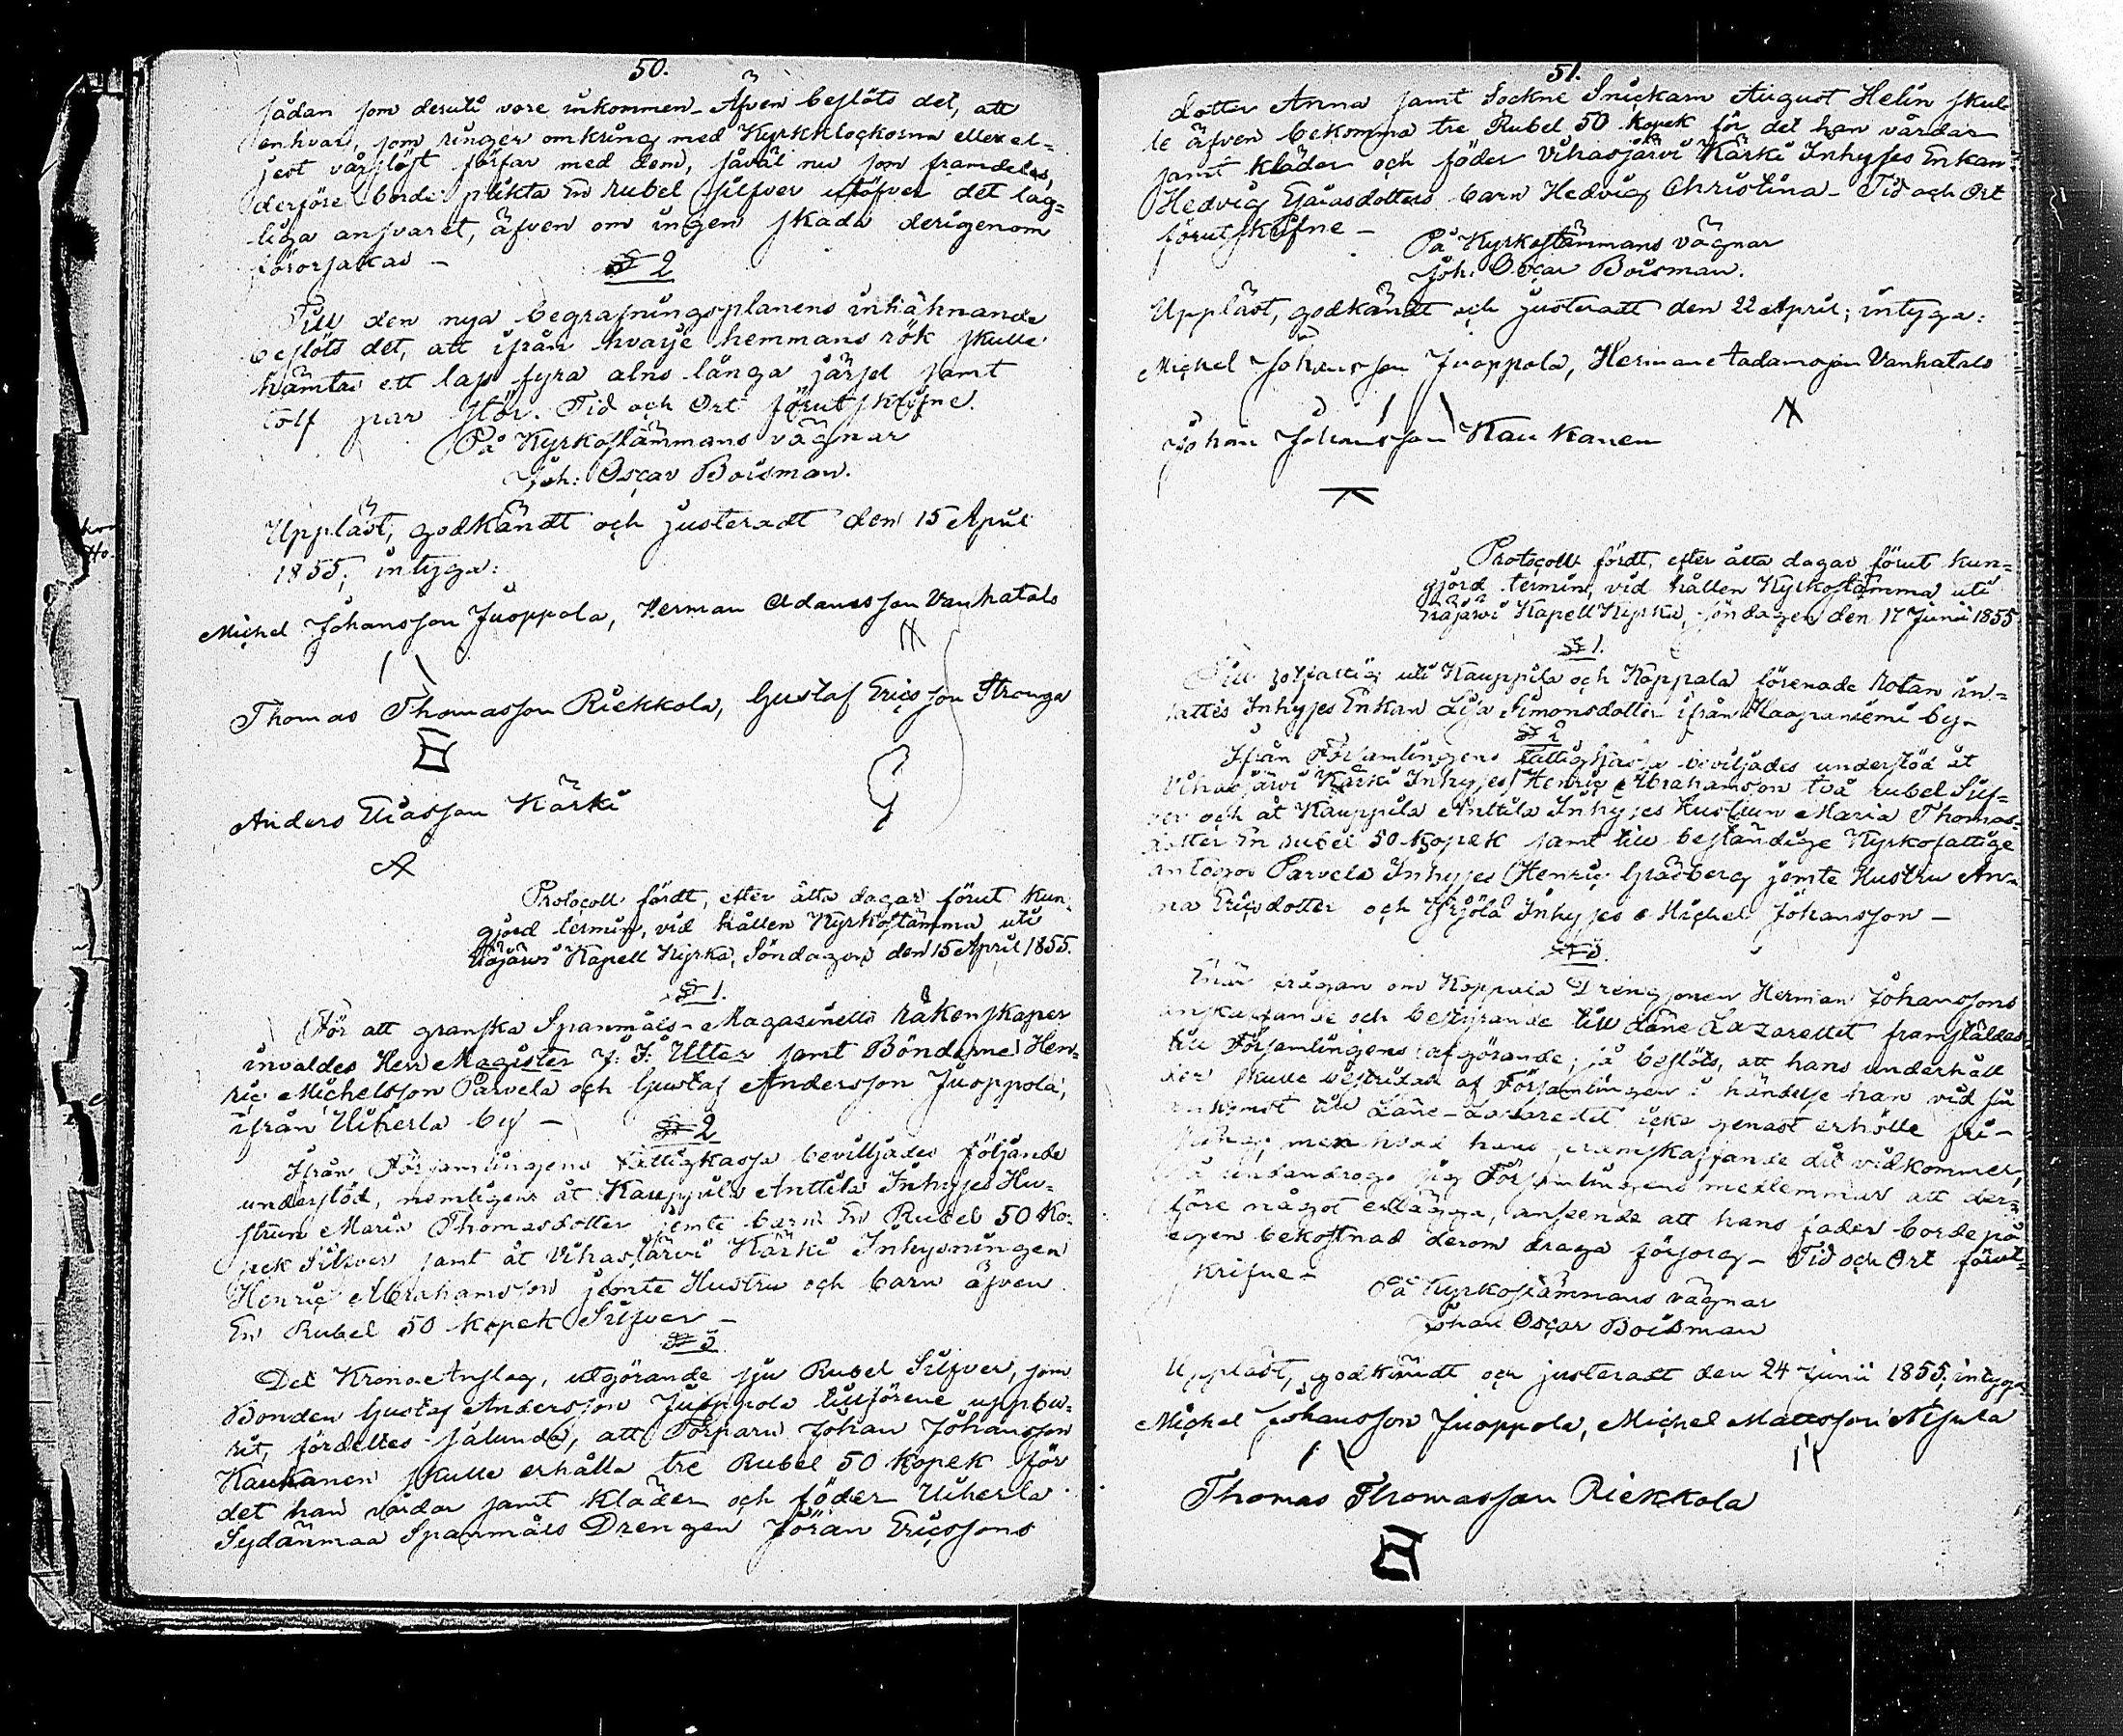 50.
sådan som deruti vore inkommen - Äfven beslöts det, att
enhvar, som ringer omkring med Kyrkklockorna eller el=
jest vårslöst förfar med dem, såväl nu som framdeles,
derföre borde plikta En rubel silfver utöfver det lag=
liga ansvaret, äfven om ingen skada derigenom
förorsakas -
§ 2
Till den nya begrafningsplanens inhähnande
beslöts det, att ifrån hvarje hemmans rök skulle
hämtas ett lass fyra alns långa järsel samt
tolf par stör. Tid och Ort förutskrifne.
På Kyrkostämmans vägnar
Joh: Oscar Boisman.
Uppläst, godkändt och justeradt den 15 April
1855; intyga:
Michel Johansson Juoppola, Herman Adamsson Vanhatalo
Thomas Thomasson Riekkola, Gustaf Ericsson Stronga
Anders Eliasson Kärki
Protocoll fördt, efter åtta dagar förut kun=
gjord termin, vid hållen Kyrkostämma uti
Kapell Kyrka, Söndagen den 15 April 1855.
§ 1.
För att granska Spanmåls-Magasinetts räkenskaper
invaldes Herr Magister J: J: Utter samt Bönderne Hen=
ric Michelsson Parvela och Gustaf Andersson Juoppola,
ifrån Uiherla by -
§ 2
Ifrån Församlingens Fattigkassa beviljades följande
understöd, nemligen åt Kauppila Anttila Inhyses Hu=
strun Maria Thomasdotter jemte barn En Rubel 50 Ko=
pek Silfver samt åt Vihasjärvi Kärki Inhysningen
Henric Abrahamsson jemte Hustru och barn äfven
En Rubel 50 kopek Silfver -
§ 3
Det Krono Anslag, utgörande sju Rubel Silfver, som
Bonden Gustaf Andersson Juoppola tillförene uppbu=
rit, fördeltes sålunda, att Torparn Johan Johansson
Kaukanen skulle erhålla tre Rubel 50 kopek för
det han vårdar samt kläder och föder Uiherla
Sydänmaa Spanmåls Drengen Jöran Ericssons
51.
dotter Anna samt Sockne Snickarn August Helin skul
le äfven bekomma tre Rubel 50 kopek för det han vårdar
samt kläder och föder Vihasjärvi Kärki Inhyses Enkan
Hedvig dotters barn Hedvig Christina - Tid och Ort
förutskrifne -
På Kyrkostämmans vägnar
Joh: Oscar Boisman.
Uppläst, godkändt och justeradt den 22 April; intyga:
Michel Johansson Juoppola, Herman Aadamsson Vanhatalo
Johan Johansson Kaukanen
Protocoll fördt, efter åtta dagar förut kun=
gjord termin, vid hållen Kyrkostämma uti
Kapell Kyrka, söndagen den 17 Junii 1855
§ 1.
Till rotfattig uti Kauppila och Koppala förenade Rotan in=
sattes Inhyses Enkan Lisa Simonsdotter ifrån Haapaniemi by -
§ 2
Ifrån Församlingens Fattigkassa beviljades understöd åt
Vihasjärvi Kärki Inhyses Henric Abrahamson två rubel Silf=
ver och åt Kauppila Anttila Inhyses Hustrun Maria Thomas=
dotter En rubel 50 kopek samt till beständige Kyrkofattige
antogos Parvela Inhyses Henric Gråsberg jemte Hustru An=
na Ericsdotter och Yrjölä Inhyses Michel Johansson -
§ 3.
Enär frågan om Koppala Drengsonen Herman Johanssons
anskaffande och befrijande till Läne Lazarettet framställdes
till Församlingens afgörande; så beslöts, att hans underhåll
der skulle bestridas af Församlingen i händelse han vid sin
ankomst till Läne-Lazarettet icke genast erhölle fri-
; men hvad hans framskaffande dit vidkommer,
så undandrogo sig Församlingens medlemmar att der=
före något erlägga, anseende att hans fader borde på
egen bekostnad derom draga försorg - Tid och Ort förut=
skrifne -
På Kyrkostämmans vägnar
Johan Oscar Boisman
Uppläst, godkändt och justeradt den 24 Junii 1855; intyga
Michel Johansson Juoppola, Michel Mattsson Nisula
Thomas Thomasson Riekkola